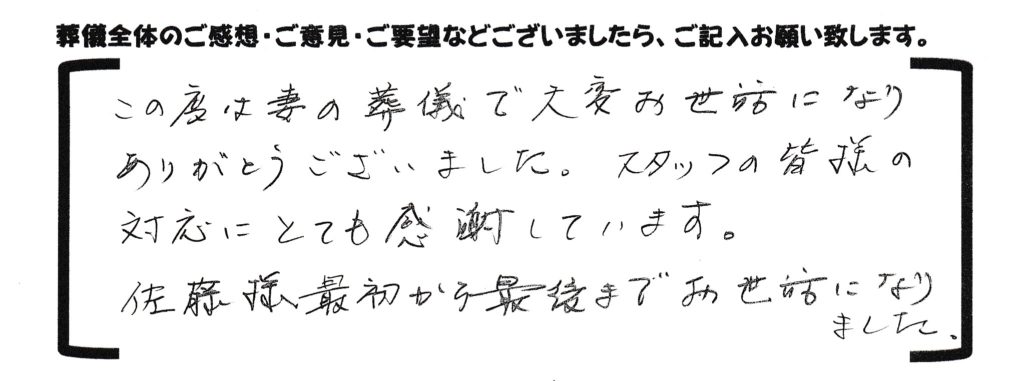 葬儀全体のご感想・ご意見・ご要望などございましたら、ご記入お願い致します。
この度は妻の葬儀で大変お世話になり
ありがとうございました。スタッフの皆様の
対応にとても感謝しています。
佐藤様、最初から最後までお世話になり
ました。